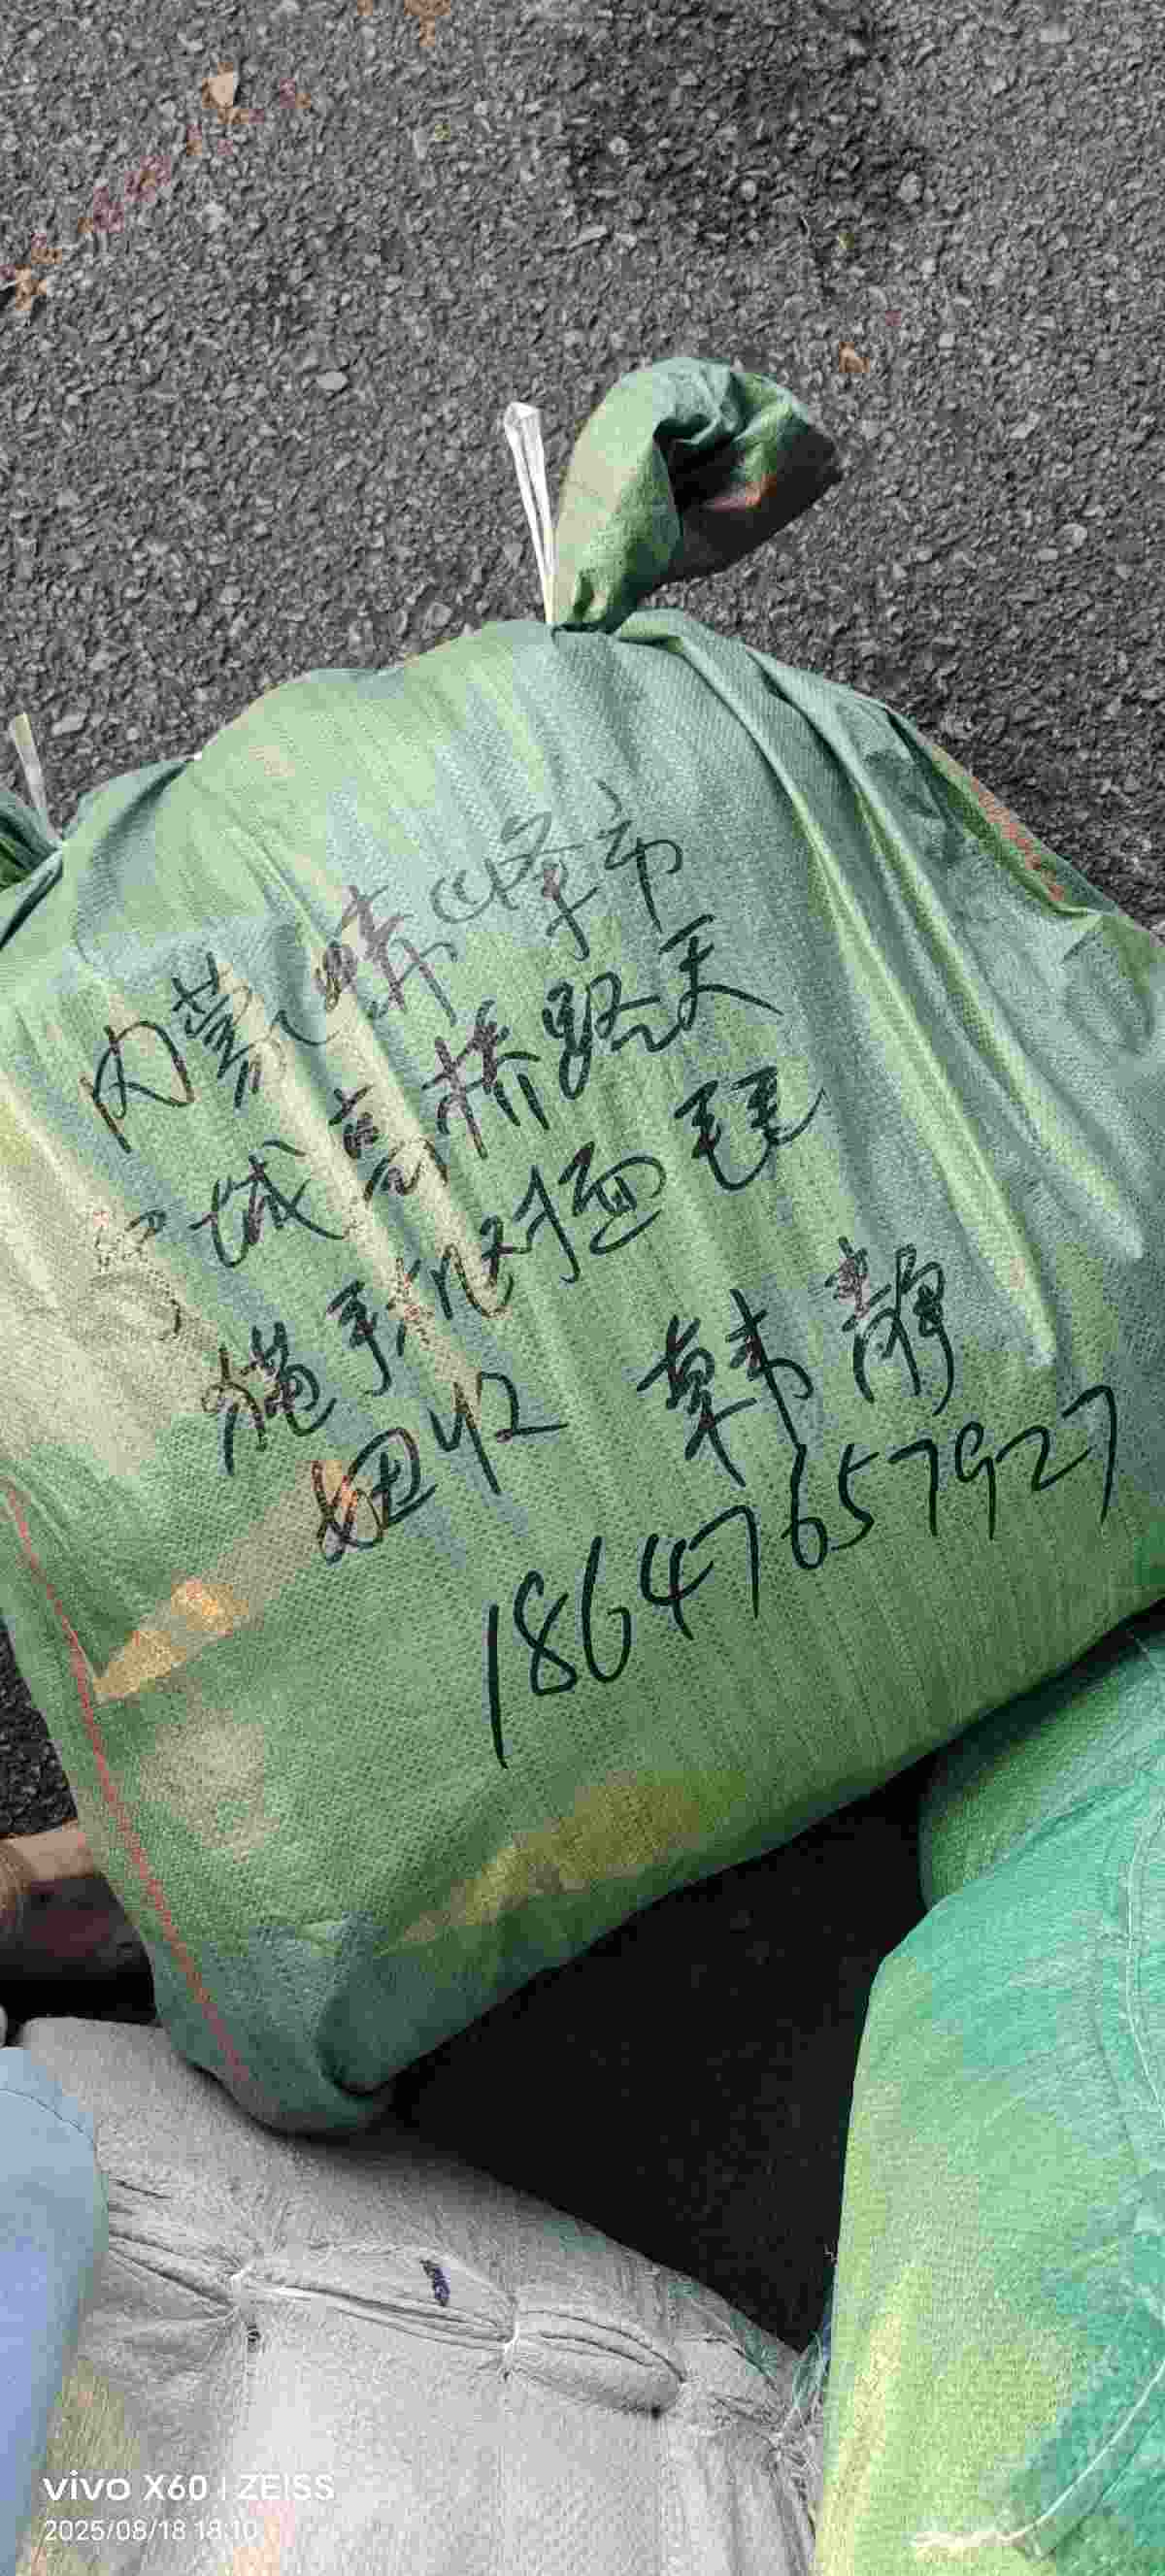 内蒙赤峰市
宁城高桥路天
猫手机对面毛毛
妞收 韩静
18647657927
vivo X60 | ZEISS
2025/08/18 18:10